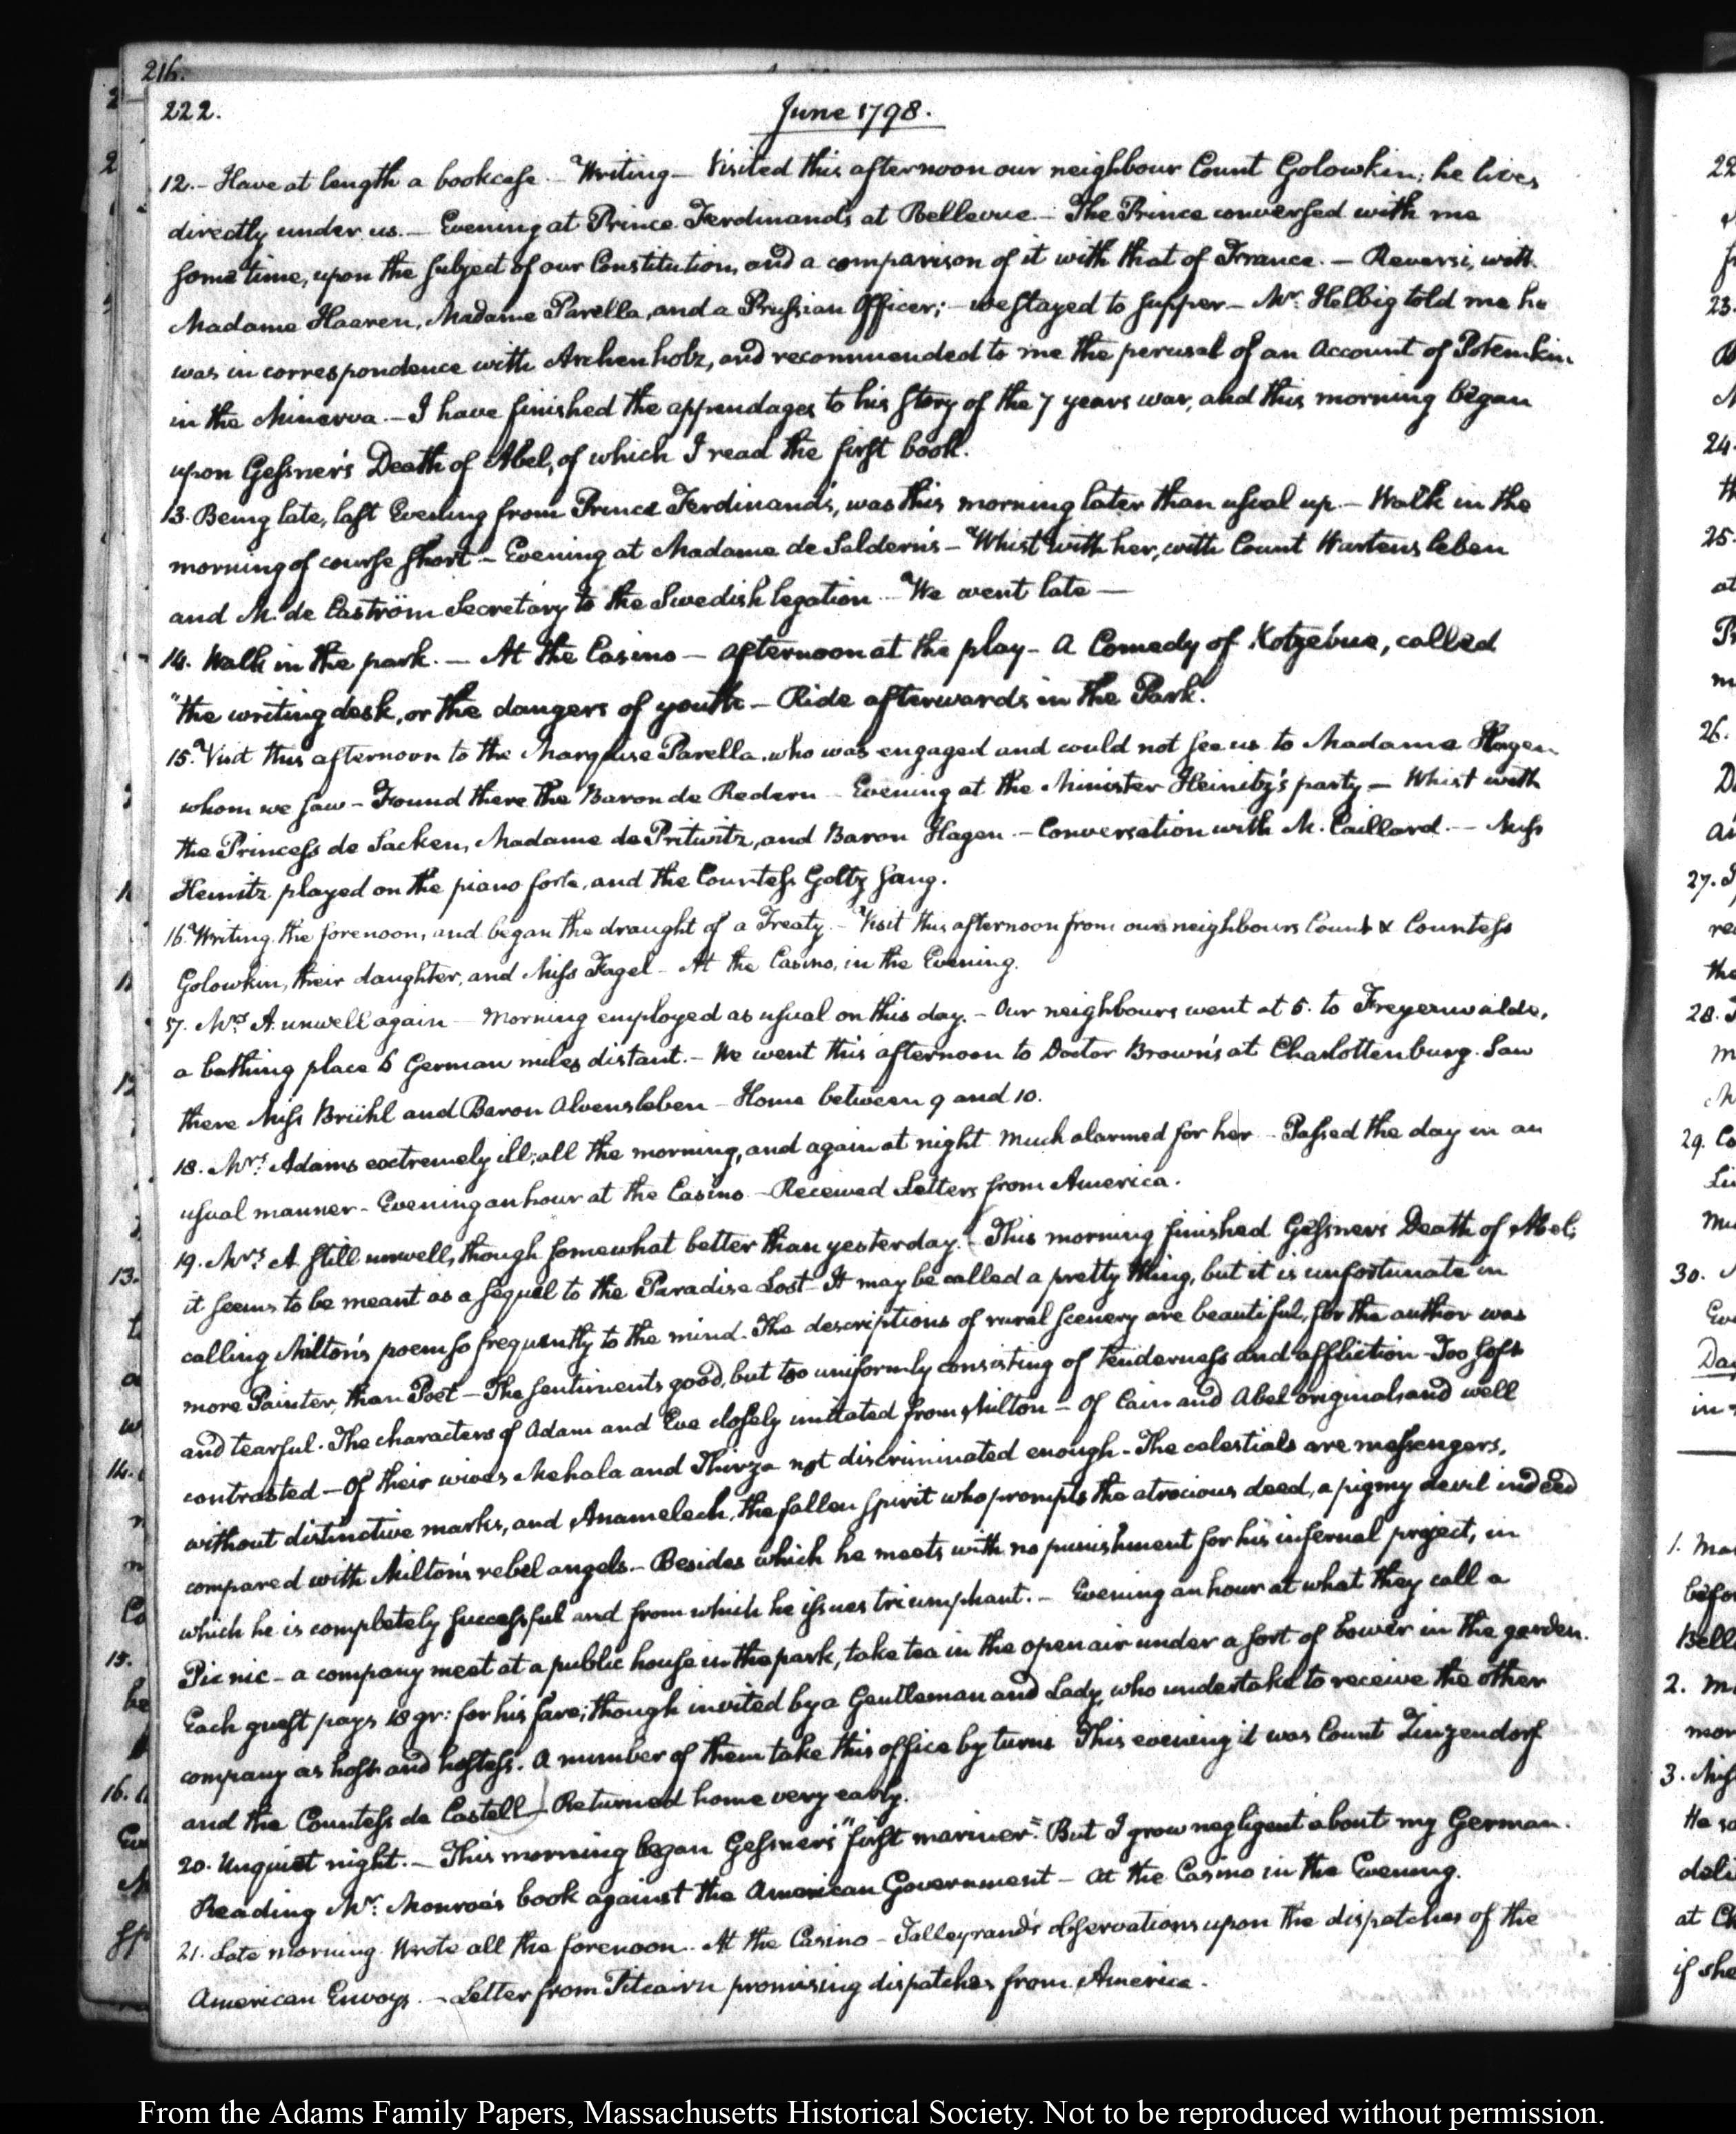 216.
222.
June 1798.
12.- Have at length a bookcase.- Writing- Visited this afternoon our neighbour Count Golowkin; he lives
directly under us.- Evening at Prince Ferdinand's at Bellevue.- The Prince conversed with me
some time, upon the subject of our Constitution, and a comparison of it with that of France.- Reversi, with
Madame Haaren, Madame Parella, and a Prussian Officer;- we stayed to supper- Mr. Helbig told me he
was in correspondence with Archenholz, and recommended to me the perusal of an Account of Potemkin
in the Minerva.- I have finished the appendages to his story of the 7 years war, and this morning began
upon Gessner's Death of Abel, of which I read the first book.
13. Being late, last Evening from Prince Ferdinand's, was this morning later than usual up.- Walk in the
morning of course short- Evening at Madame de Saldern's- Whist with her, with Count Wartensleben
and M. de Caström Secretary to the Swedish legation- We went late-
14. Walk in the park.- At the Casino- afternoon at the play- A Comedy of Kotzebue, called
"the writing desk, or the dangers of youth- Ride afterwards in the Park.
15. Visit this afternoon to the Marquise Parella, who was engaged and could not see us. to Madame Hagen
whom we saw- Found there the Baron de Redern- Evening at the Minister Heinitz's party- Whist with
the Princess de Sacken, Madame de Pritwitz, and Baron Hagen.- Conversation with M. Caillard.- Miss
Heinitz played on the piano forte, and the Countess Goltz sang.
16. Writing the forenoon, and began the draught of a Treaty.- Visit this afternoon from our neighbours Count & Countess
Golowkin, their daughter, and Miss Fagel- At the Casino, in the Evening.
17. Mrs. A. unwell again- Morning employed as usual on this day.- Our neighbours went at 5. to Freyenwalde,
a bathing place 6 German miles distant.- We went this afternoon to Doctor Brown's at Charlottenburg. Saw
there Miss Brühl and Baron Alvensleben- Home between 9 and 10.
18. Mrs. Adams extremely ill, all the morning, and again at night much alarmed for her- Passed the day in an
usual manner- Evening an hour at the Casino- Received Letters from America.
19. Mrs. A still unwell, though somewhat better than yesterday.- This morning finished Gessner's Death of Abel;
it seems to be meant as a sequel to the Paradise Lost- It may be called a pretty thing, but it is unfortunate in
calling Milton's poem so frequently to the mind. The descriptions of rural scenery are beautiful, for the author was
more Painter, than Poet- The sentiments good, but too uniformly consisting of tenderness and affliction- Too soft
and tearful. The characters of Adam and Eve closely imitated from Milton- Of Cain and Abel original, and well
contrasted- Of their wives Mehala and Thirza not discriminated enough- The celestials are messengers,
without distinctive marks, and Anamelech, the fallen spirit who prompts the atrocious deed, a pigmy devil indeed
compared with Milton's rebel angels.- Besides which he meets with no punishment for his infernal project, in
which he is completely successful and from which he issues triumphant.- Evening an hour at what they call a
Pic nic- a company meet at a public house in the park, take tea in the open air under a sort of bower in the garden.
Each guest pays 18 gr: for his fare; though invited by a Gentleman and Lady, who undertake to receive the other
company as host and hostess. A number of them take this office by turns This evening it was Count Zinzendorf
and the Countess de Castell- Returned home very early.
20. Unquiet night.- This morning began Gessner's "first mariner." But I grow negligent about my German.
Reading Mr. Monroe's book against the American Government- At the Casino in the Evening.
21. Late morning. Wrote all the forenoon.- At the Casino- Talleyrand's observations upon the dispatches of the
American Envoys.- Letter from Pitcairn promising dispatches from America.
From the Adams Family Papers, Massachusetts Historical Society. Not to be reproduced without permission.